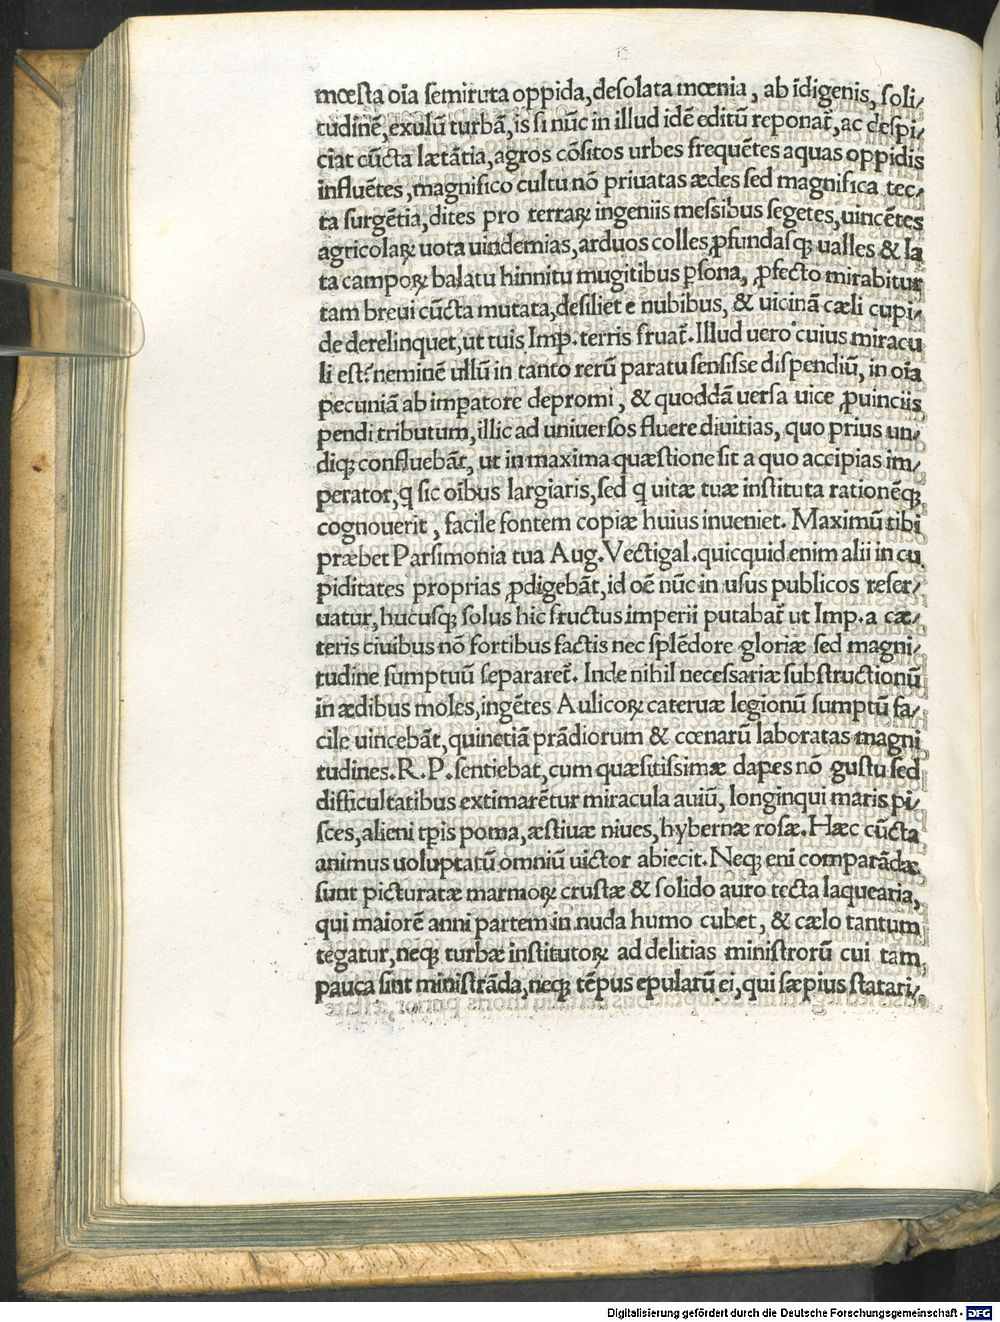 mœsta oīa semiruta oppida, desolata mœnia, ab īdigenis, soli/
tudinē, exulū turbā, is si nūc in illud idē editū reponat̄, ac despi/
ciat cūcta lætātia, agros cōsitos urbes frequētes aquas oppidis
influētes, magnifico cultu nō priuatas ædes sed magnifica tec/
ta surgētia, dites pro terraꝝ ingeniis messibus segetes, uincētes
agricolaꝝ uota uindemias, arduos colles, ꝓfundasqꝫ ualles & la
ta campoꝝ balatu hinnitu mugitibus ꝑsona, ꝓfecto mirabitur
tam breui cūcta mutata, desiliet e nubibus, & uicinā cæli cupi/
de derelinquet, ut tuis Imp. terris fruat̄. Illud uero cuius miracu
li est? neminē ullū in tanto rerū paratu sensisse dispendiū, in oīa
pecuniā ab impatore depromi, & quoddā uersa uice ꝓuinciis
pendi tributum, illic ad uniuersos fluere diuitias, quo prius un/
diqꝫ confluebāt, ut in maxima quæstione sit a quo accipias im/
perator, q̄ sic oībus largiaris, sed q uitæ tuæ instituta rationēqꝫ
cognouerit, facile fontem copiæ huius inueniet. Maximū tibi
præbet Parsimonia tua Aug. Vectigal. quicquid enim alii in cu
piditates proprias ꝓdigebāt, id oē nūc in usus publicos reser/
uatur, hucusqꝫ solus hic fructus imperii putabat̄ ut Imp. a cæ/
teris ciuibus nō fortibus factis nec splēdore gloriæ sed magni/
tudine sumptuū separaret̄. Inde nihil necessariæ substructionū
in ædibus moles, ingētes Aulicoꝝ cateruæ legionū sumptū fa/
cile uincebāt, quinetiā prādiorum & cœnarū laboratas magni
tudines. R. P. sentiebat, cum quæsitissimæ dapes nō gustu sed
difficultatibus extimarētur miracula auiū, longinqui maris pi/
sces, alieni tꝑis poma, æstiuæ niues, hybernæ rosæ. Hæc cūcta
animus uoluptatū omniū uictor abiecit. Neqꝫ eni comparādæ
sunt picturatæ marmoꝝ crustæ & solido auro tecta laquearia,
qui maiorē anni partem in nuda humo cubet, & cælo tantum
tegatur, neqꝫ turbæ institutoꝝ ad delitias ministrorū cui tam
pauca sint ministrāda, neqꝫ tēpus epularū ei, qui sæpius statari/
Digitalisierung gefördert durch die Deutsche Forschungsgemeinschaft - DFG